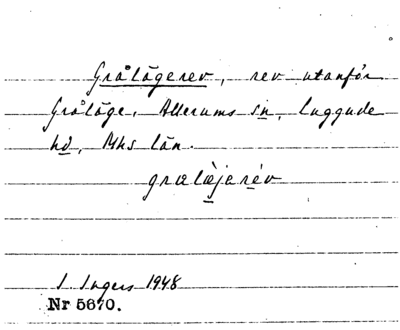 Grålägerev, rev utanför
Gråläge, Allerums sn, Luggude
hd, Mhs län.
grælæjerév
I. Ingers 1948
Nr 5670.